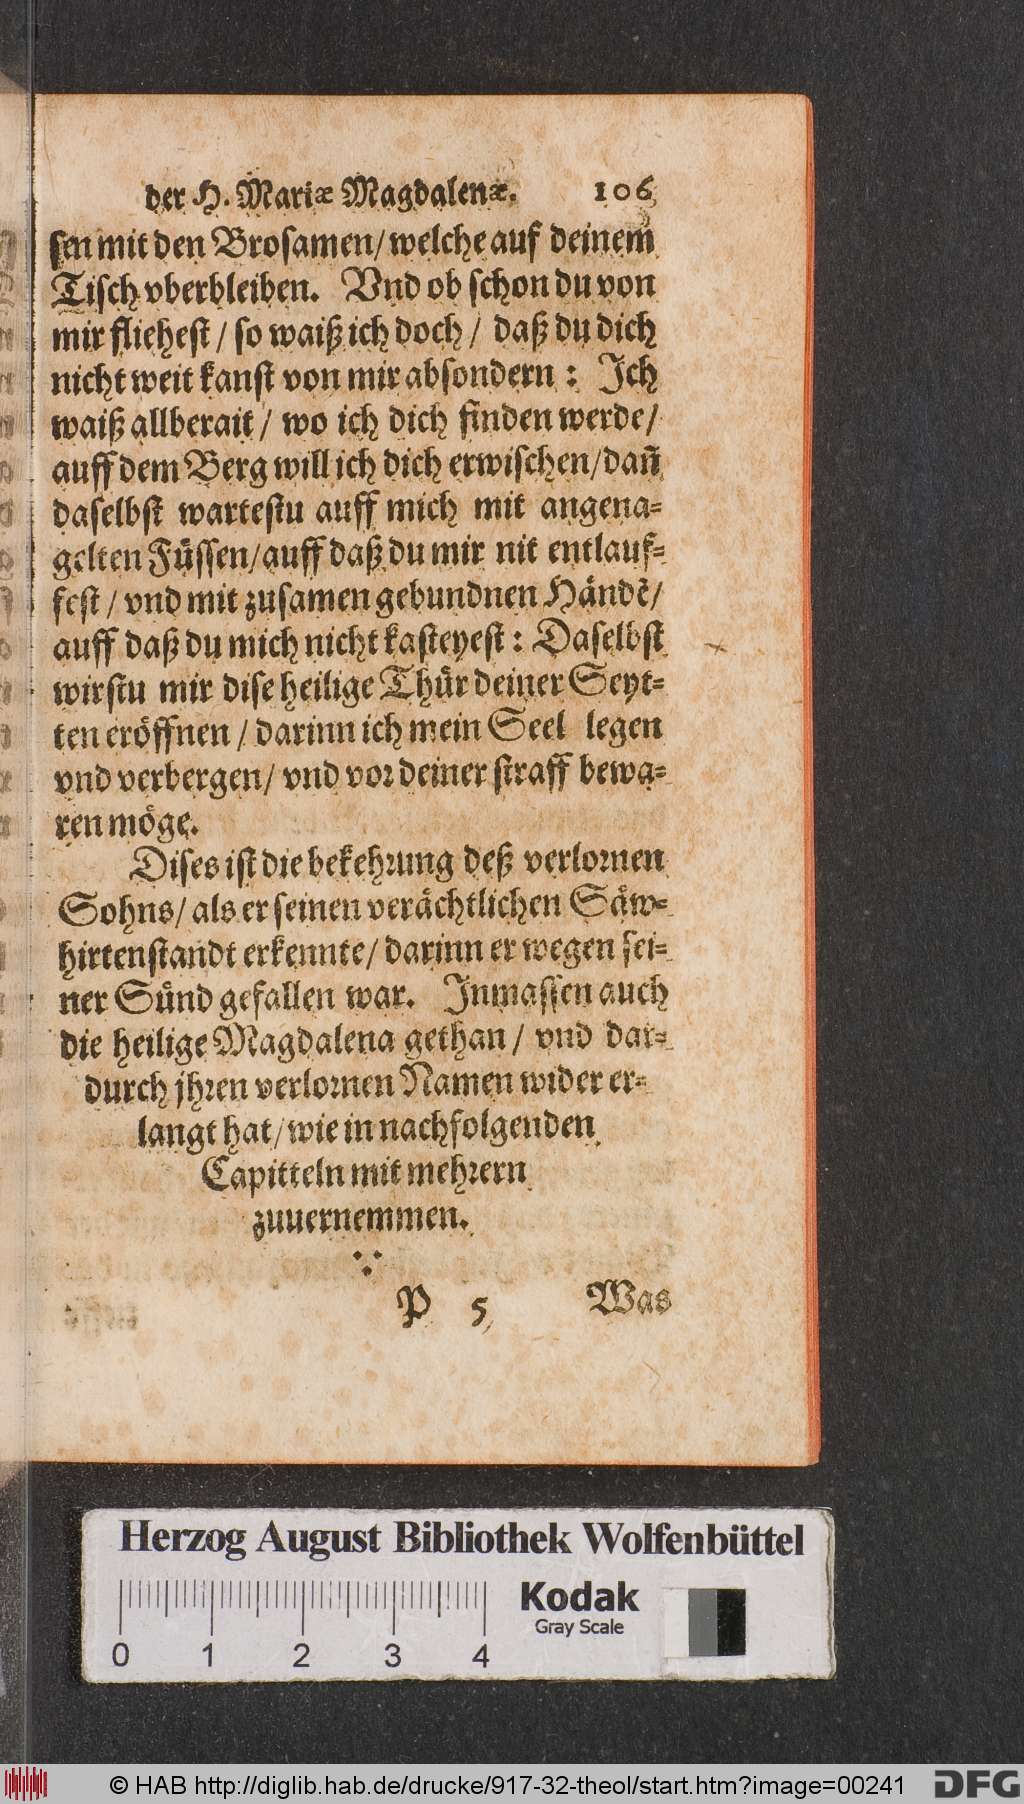 der H. Mariæ Magdalenæ. 106
sen mit den Brosamen/ welche auf deinem
Tisch vberbleiben. Vnd ob schon du von
mir fliehest / so waiß ich doch / daß du dich
nicht weit kanst von mir absondern : Ich
waiß allberait / wo ich dich finden werde/
auff dem Berg will ich dich erwischen/dañ
daselbst wartestu auff mich mit angena=
gelten Füssen/auff daß du mir nit entlauf=
fest / vnd mit zusamen gebundnen Händẽ/
auff daß du mich nicht kasteyest : Daselbst
wirstu mir dise heilige Thür deiner Seyt=
ten eröffnen / darinn ich mein Seel legen
vnd verbergen/ vnd vor deiner straff bewa=
ren möge.
Dises ist die bekehrung deß verlornen
Sohns/ als er seinen verächtlichen Säw=
hirtenstandt erkennte/ darinn er wegen sei=
ner Sünd gefallen war. Inmassen auch
die heilige Magdalena gethan / vnd dar=
durch jhren verlornen Namen wider er=
langt hat/ wie in nachfolgenden
Capitteln mit mehrern
zuuernemmen.
P 5 Was
Herzog August Bibliothek Wolfenbüttel
Kodak
Gray Scale
0 1 2 3 4
© HAB http://diglib.hab.de/drucke/917-32-theol/start.htm?image=00241 DFG